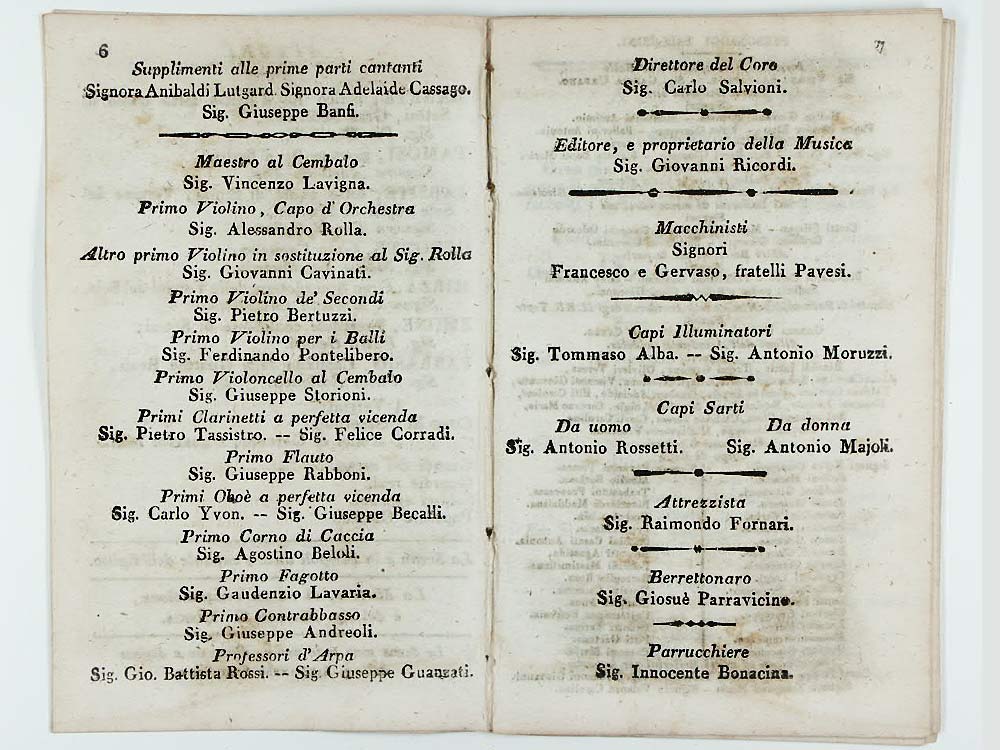 6
Supplimenti alle prime parti cantanti
Signora Anibaldi Lutgard. Signora Adelaide Cassago.
Sig. Giuseppe Banfi.
Maestro al Cembalo
Sig. Vincenzo Lavigna.
Primo Violino, Capo d'Orchestra
Sig. Alessandro Rolla.
Altro primo Violino in sostituzione al Sig. Rolla
Sig. Giovanni Cavinati.
Primo Violino de' Secondi
Sig. Pietro Bertuzzi.
Primo Violino per i Balli
Sig. Ferdinando Pontelibero.
Primo Violoncello al Cembalo
Sig. Giuseppe Storioni.
Primi Clarinetti a perfetta vicenda
Sig. Pietro Tassistro. -- Sig. Felice Corradi.
Primo Flauto
Sig. Giuseppe Rabboni.
Primi Oboè a perfetta vicenda
Sig. Carlo Yvon. -- Sig. Giuseppe Becalli.
Primo Corno di Caccia
Sig. Agostino Beloli.
Primo Fagotto
Sig. Gaudenzio Lavaria.
Primo Contrabbasso
Sig. Giuseppe Andreoli.
Professori d'Arpa
Sig. Gio. Battista Rossi. -- Sig. Giuseppe Guanzati.
7
Direttore del Coro
Sig. Carlo Salvioni.
Editore, e proprietario della Musica
Sig. Giovanni Ricordi.
Macchinisti
Signori
Francesco e Gervaso, fratelli Pavesi.
Capi Illuminatori
Sig. Tommaso Alba. -- Sig. Antonio Moruzzi.
Capi Sarti
Da uomo Da donna
Sig. Antonio Rossetti. Sig. Antonio Majoli.
Attrezzista
Sig. Raimondo Fornari.
Berrettonaro
Sig. Giosuè Parravicino.
Parrucchiere
Sig. Innocente Bonacina.